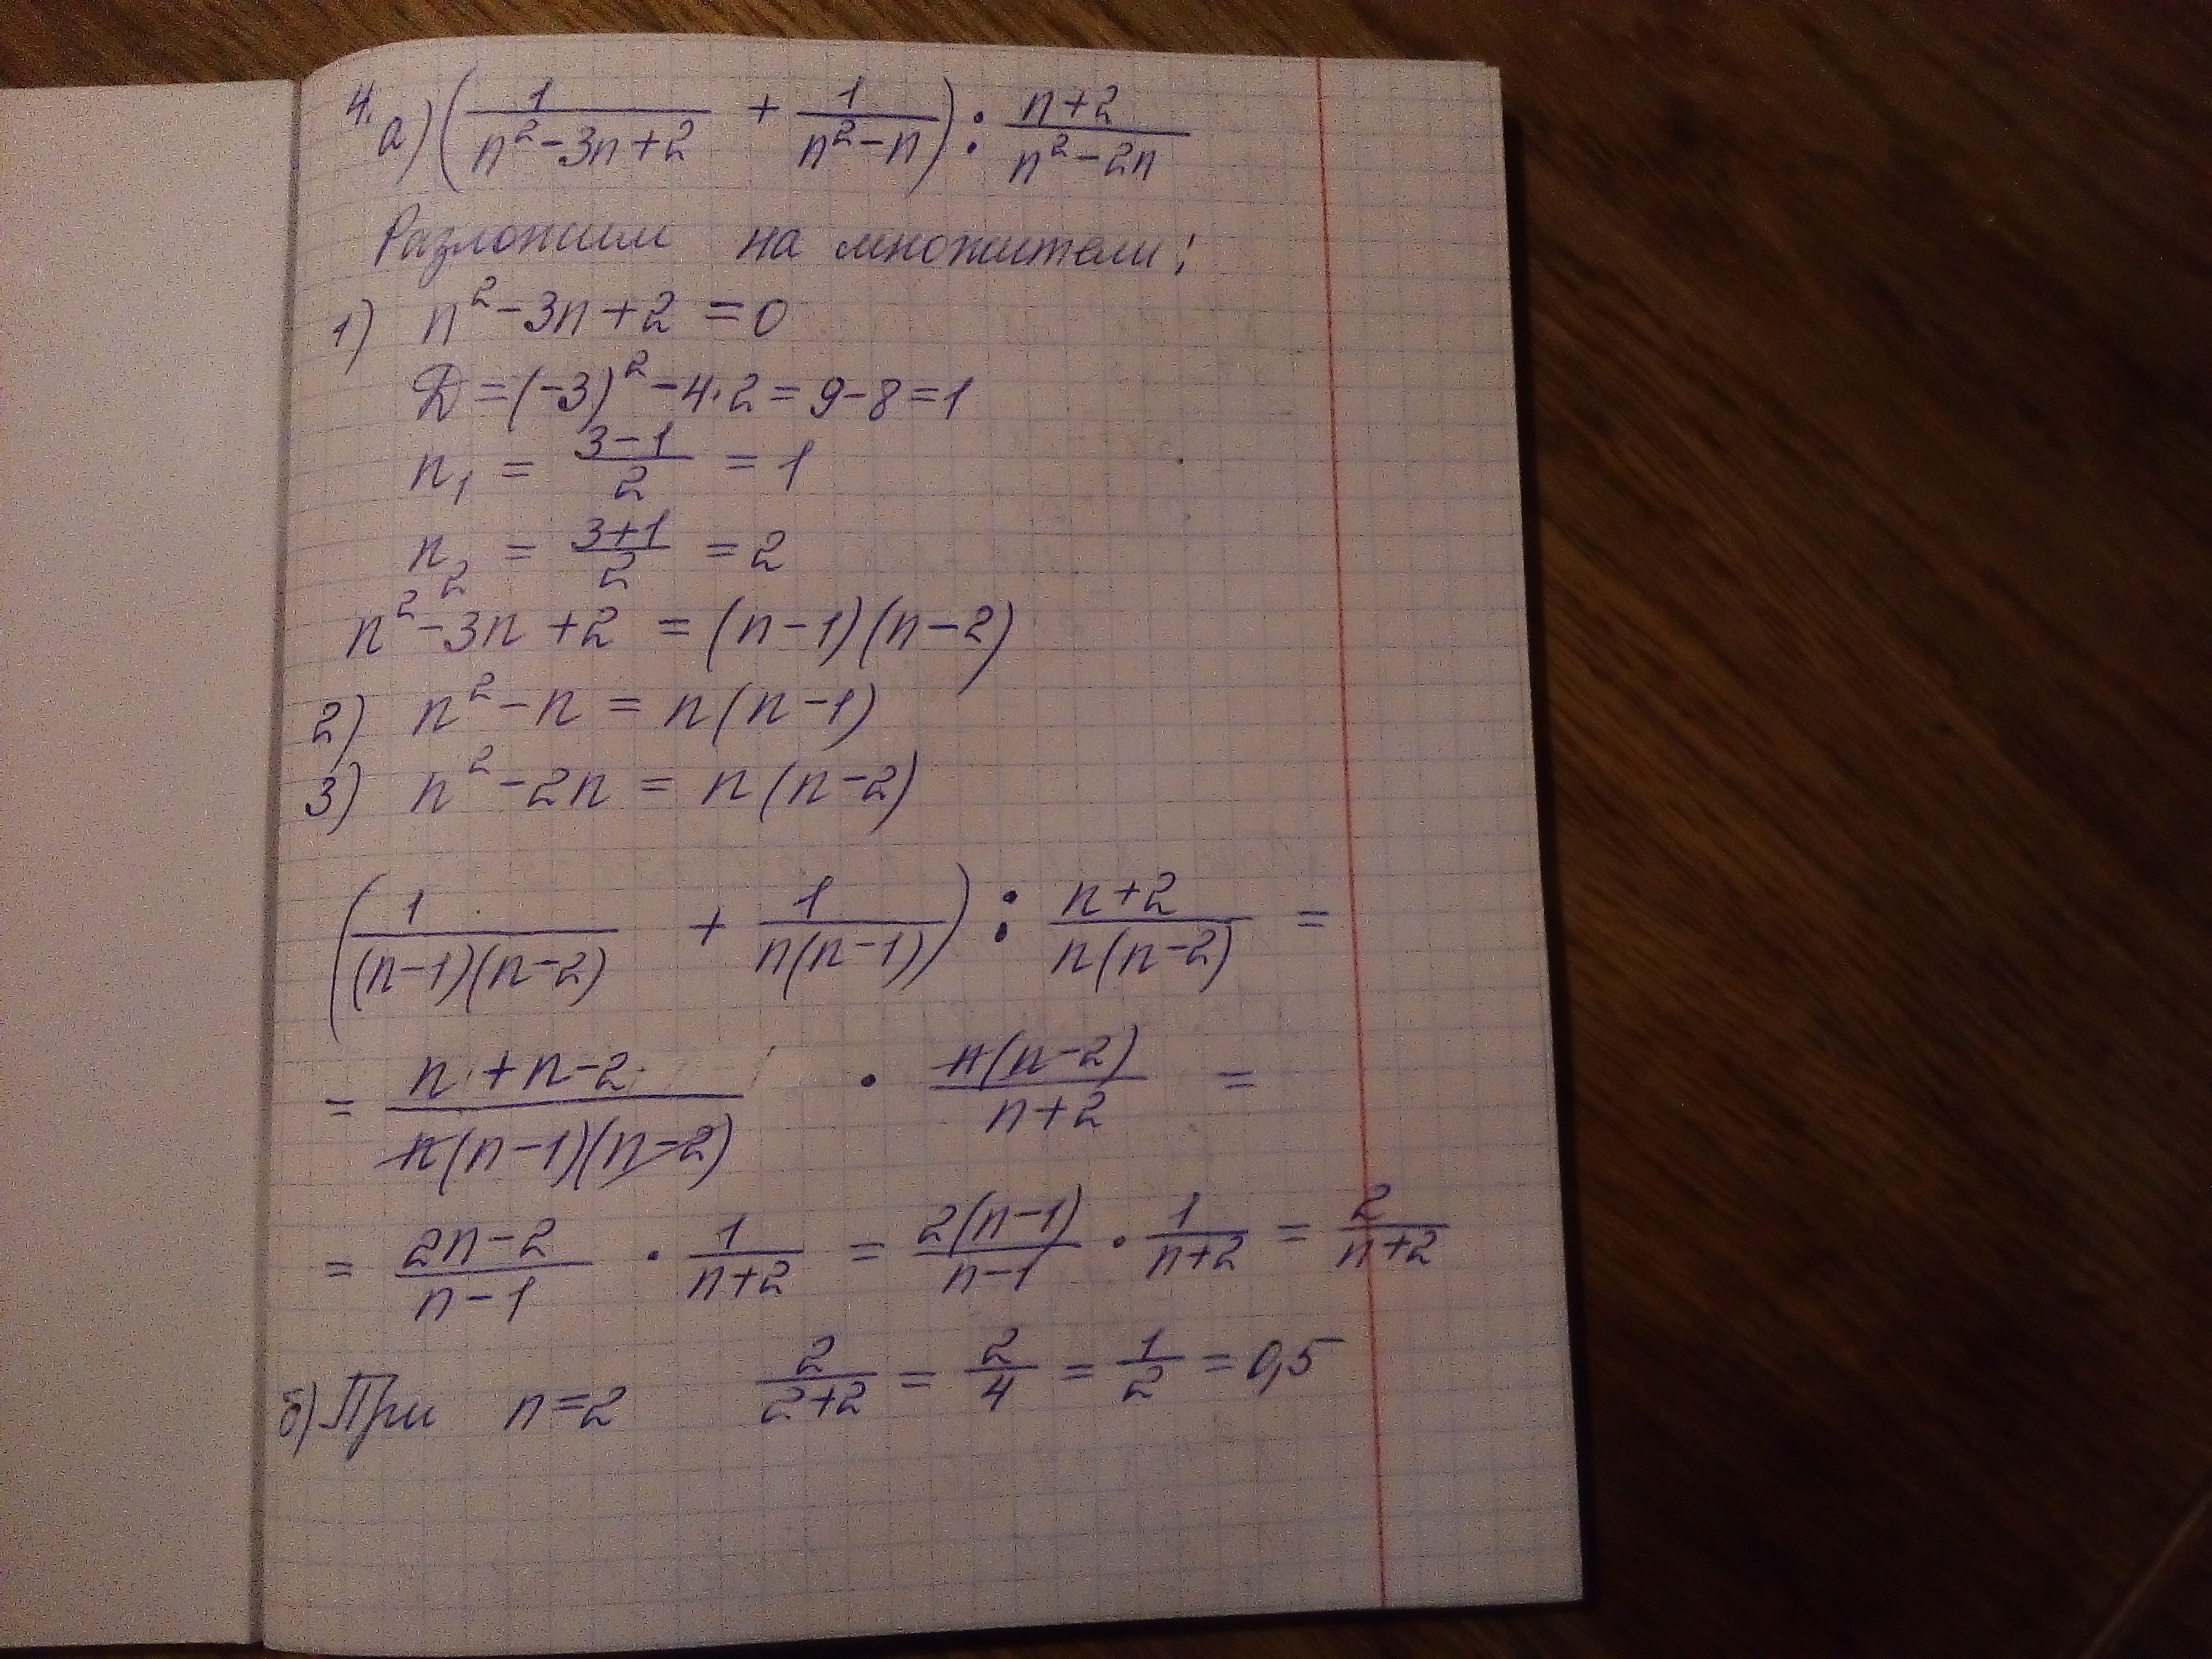 4. а) (1/(n²-3n+2) + 1/(n²-n)) : (n+2)/(n²-2n)
Разложим на множители:
1) n²-3n+2=0
Д=(-3)²-4·2=9-8=1
n₁ = (3-1)/2 = 1
n₂ = (3+1)/2 = 2
n²-3n+2 = (n-1)(n-2)
2) n²-n = n(n-1)
3) n²-2n = n(n-2)
(1/((n-1)(n-2)) + 1/(n(n-1))) : (n+2)/(n(n-2)) =
= (n+n-2)/(n(n-1)(n-2)) · n(n-2)/(n+2) =
= (2n-2)/(n-1) · 1/(n+2) = 2(n-1)/(n-1) · 1/(n+2) = 2/(n+2)
б) При n=2 2/(2+2) = 2/4 = 1/2 = 0,5